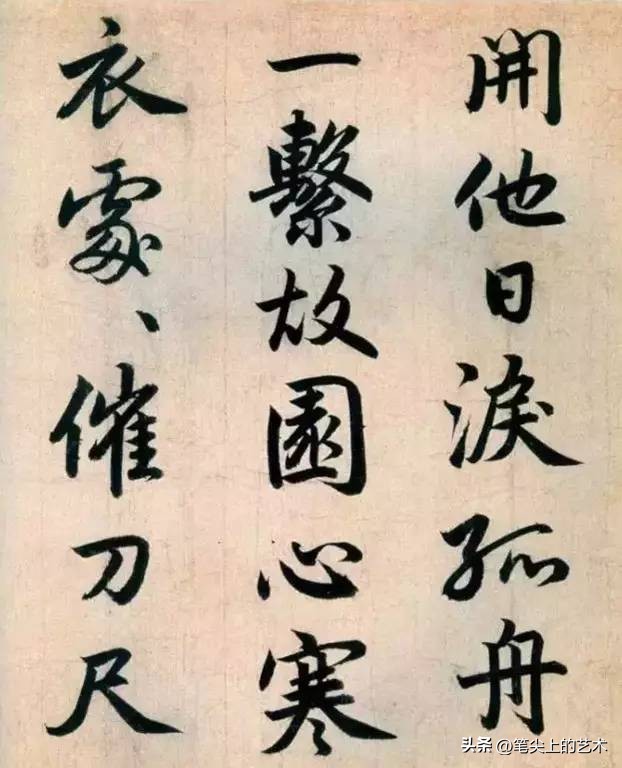 開他日淚孤舟
一繫故園心寒
衣處〻催刀尺
头条 @笔尖上的艺术